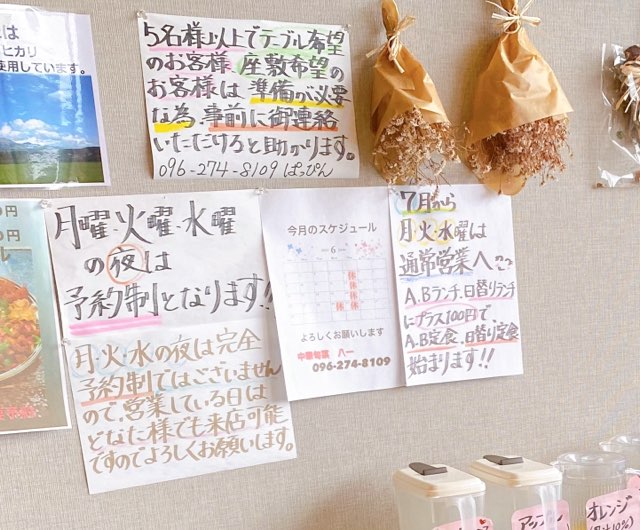 は
ヒカリ
使用しています。
5名様以上でテーブル希望
のお客様 座敷希望の
お客様は 準備が必要
な為 事前に御連絡
いただけると助かります。
096-274-8109 ぱっぴん
円
円
ル
月曜・火曜・水曜
の夜は
予約制となります!!
月・火・水の夜は完全
予約制ではございません
ので、営業している日は
どなた様でも来店可能
ですのでよろしくお願いします。
今月のスケジュール
6
休
休
休
休休
よろしくお願いします
中華旬菜 八一
096-274-8109
7月から
月・火・水曜は
通常営業へ
A.Bランチ、日替りランチ
にプラス100円で
A.B定食、日替り定食
始まります!!
オレンジ